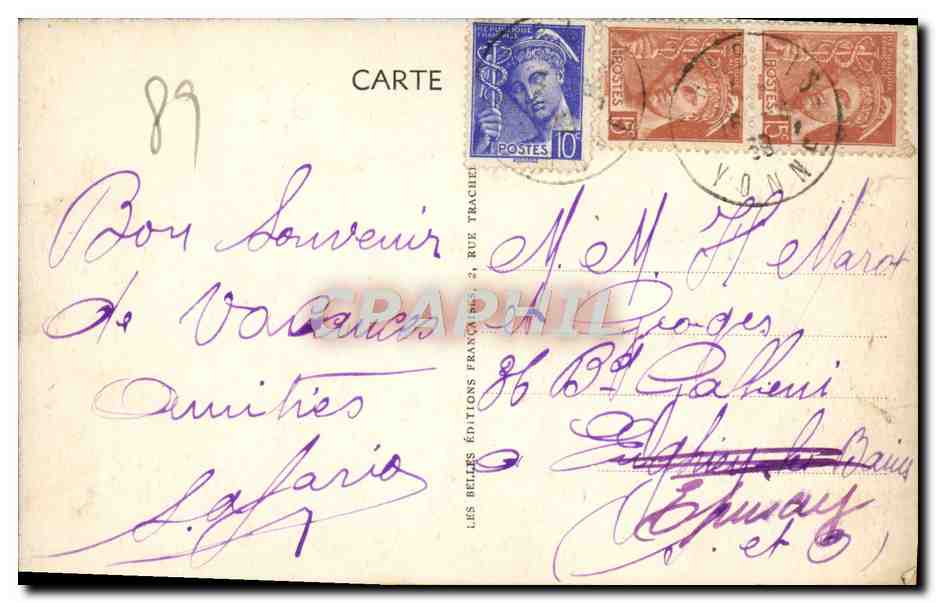 89
CARTE
RÉPUBLIQUE
FRANÇAISE
POSTES 10c
POSTES 15c
POSTES 15c
YONN
Bon Souvenir
de Vacances
Amitiés
LES BELLES ÉDITIONS FRANÇAISES, 2, RUE TRACHEL
M. M. H Marot
et Georges
36 Bd Gallieni
a Enghien les Bains
Epinay
S. et O
GRAPHIL